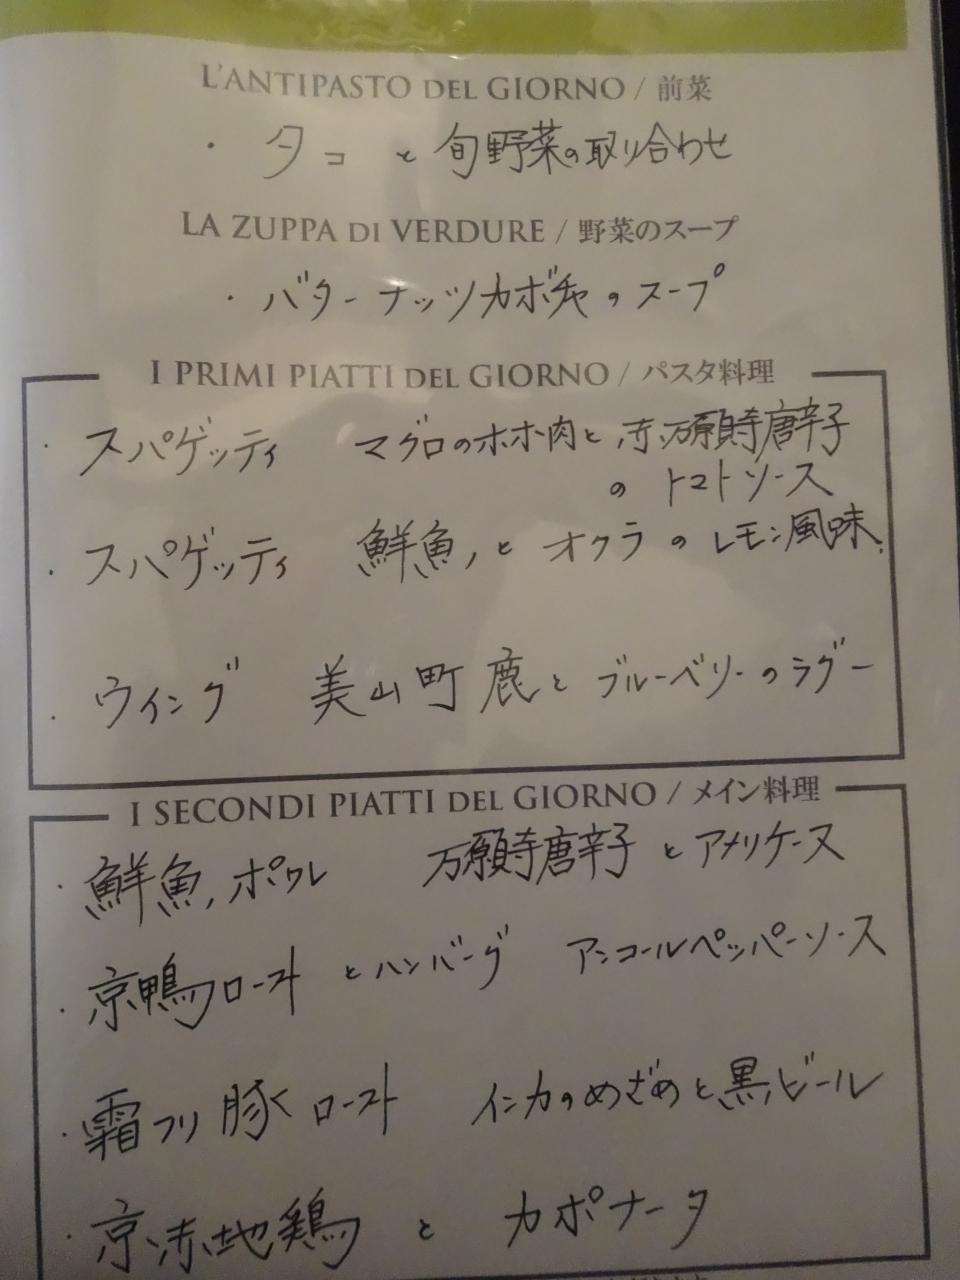 L'ANTIPASTO DEL GIORNO / 前菜
・ タコ と 旬野菜の取り合わせ
LA ZUPPA DI VERDURE / 野菜のスープ
・ バターナッツカボチャのスープ
I PRIMI PIATTI DEL GIORNO / パスタ料理
・ スパゲッティ マグロのホホ肉と赤万願寺唐辛子
の トマトソース
・ スパゲッティ 鮮魚と オクラ の レモン風味
・ ウイング 美山町 鹿と ブルーベリーのラグー
I SECONDI PIATTI DEL GIORNO / メイン料理
・ 鮮魚ポワレ 万願寺唐辛子 と アメリケーヌ
・ 京鴨ロースト と ハンバーグ アンコールペッパーソース
・ 霜フリ豚ロースト インカのめざめと黒ビール
・ 京赤地鶏 と カポナータ